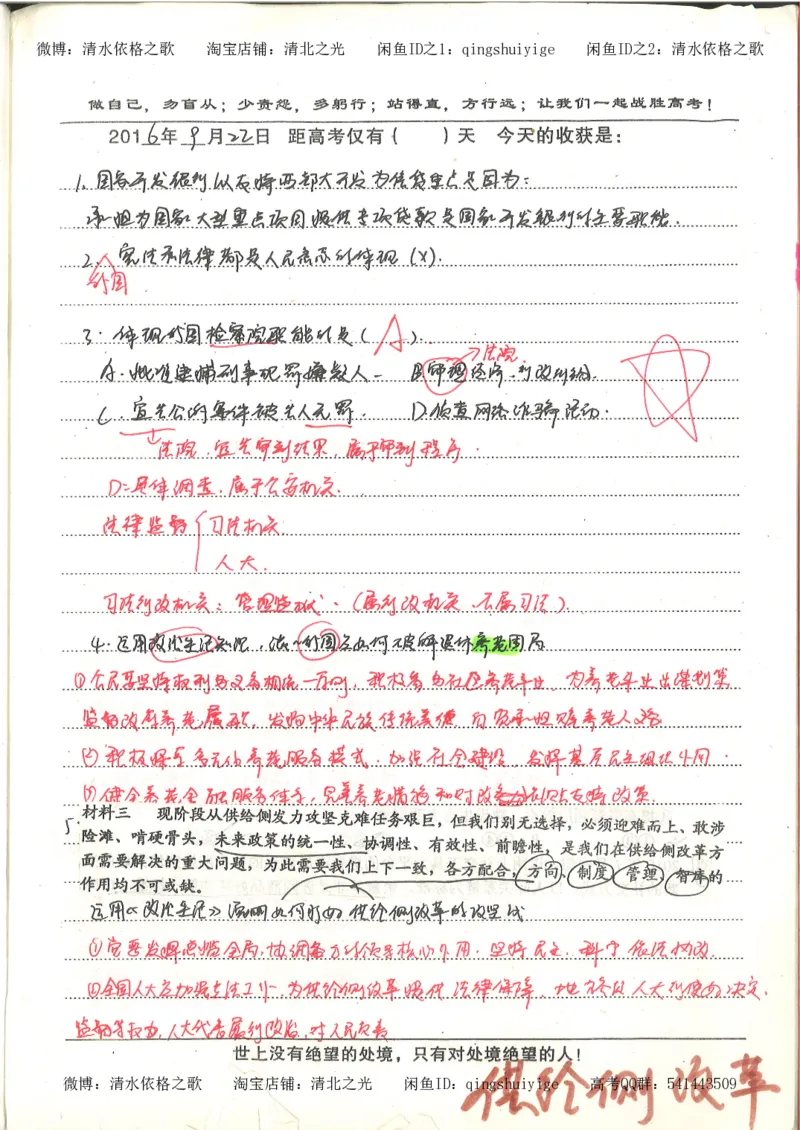 微博：清水依格之歌 淘宝店铺：清北之光 闲鱼ID之1：qingshuiyige 闲鱼ID之2：清水依格之歌
做自己，勿盲从；少责怨，多躬行；站得直，方行远；让我们一起战胜高考！
2016年 9月22日 距高考仅有（ ）天 今天的收获是：
1. 国务开发银行从支持西部大开发为信贷重点是因为：
承担为国家大型重点项目提供专项贷款是国家开发银行的主要职能.
2. 宪法和法律都是人民意志的体现 (×).
我国
3. 体现我国检察院职能的是（ A ）.
A. 批准逮捕刑事犯罪嫌疑人 B.审理经济.行政纠纷.
→法院
C. 宣告公的案件被告人无罪. D.侦查网络诈骗活动.
法院.宣告审判结果，属于审判程序.
D=具体调查.属于公安机关.
法律监督 司法机关.
人大.
司法行政机关：管理监狱.（属行政机关，不属司法）
4. 运用政治生活知识，谈~我国应如何破解退休养老困局
①公民要坚持权利与义务相统一方向，积极参与社区养老事业，为养老事业出谋划策
监督政府养老履职，发扬中华民族传统美德
② 积极 多元化养老服务模式 加强社会建设，发挥基层民主组织作用
③健全养老金融服务体系，完善养老 政策
5. 材料三 现阶段从供给侧发力攻坚克难任务艰巨，但我们别无选择，必须迎难而上、敢涉
险滩、啃硬骨头，未来政策的统一性、协调性、有效性、前瞻性，是我们在供给侧改革方
面需要解决的重大问题，为此需要我们上下一致，各方配合，方向、制度、管理、智库的
作用均不可或缺。
运用《政治生活》说明如何打好供给侧改革的攻坚战
①党要发挥总揽全局，协调各方的领导核心作用.坚持民主、科学、依法执政.
②全国人大应加强立法工作，为供给侧改革提供法律保障、地方各级人大行使好决定、
监督等权力，人大代表履行政治，对人民负责
世上没有绝望的处境，只有对处境绝望的人！
微博：清水依格之歌 淘宝店铺：清北之光 闲鱼ID：qingshuiyige 高考QQ群：541443509
供给侧改革